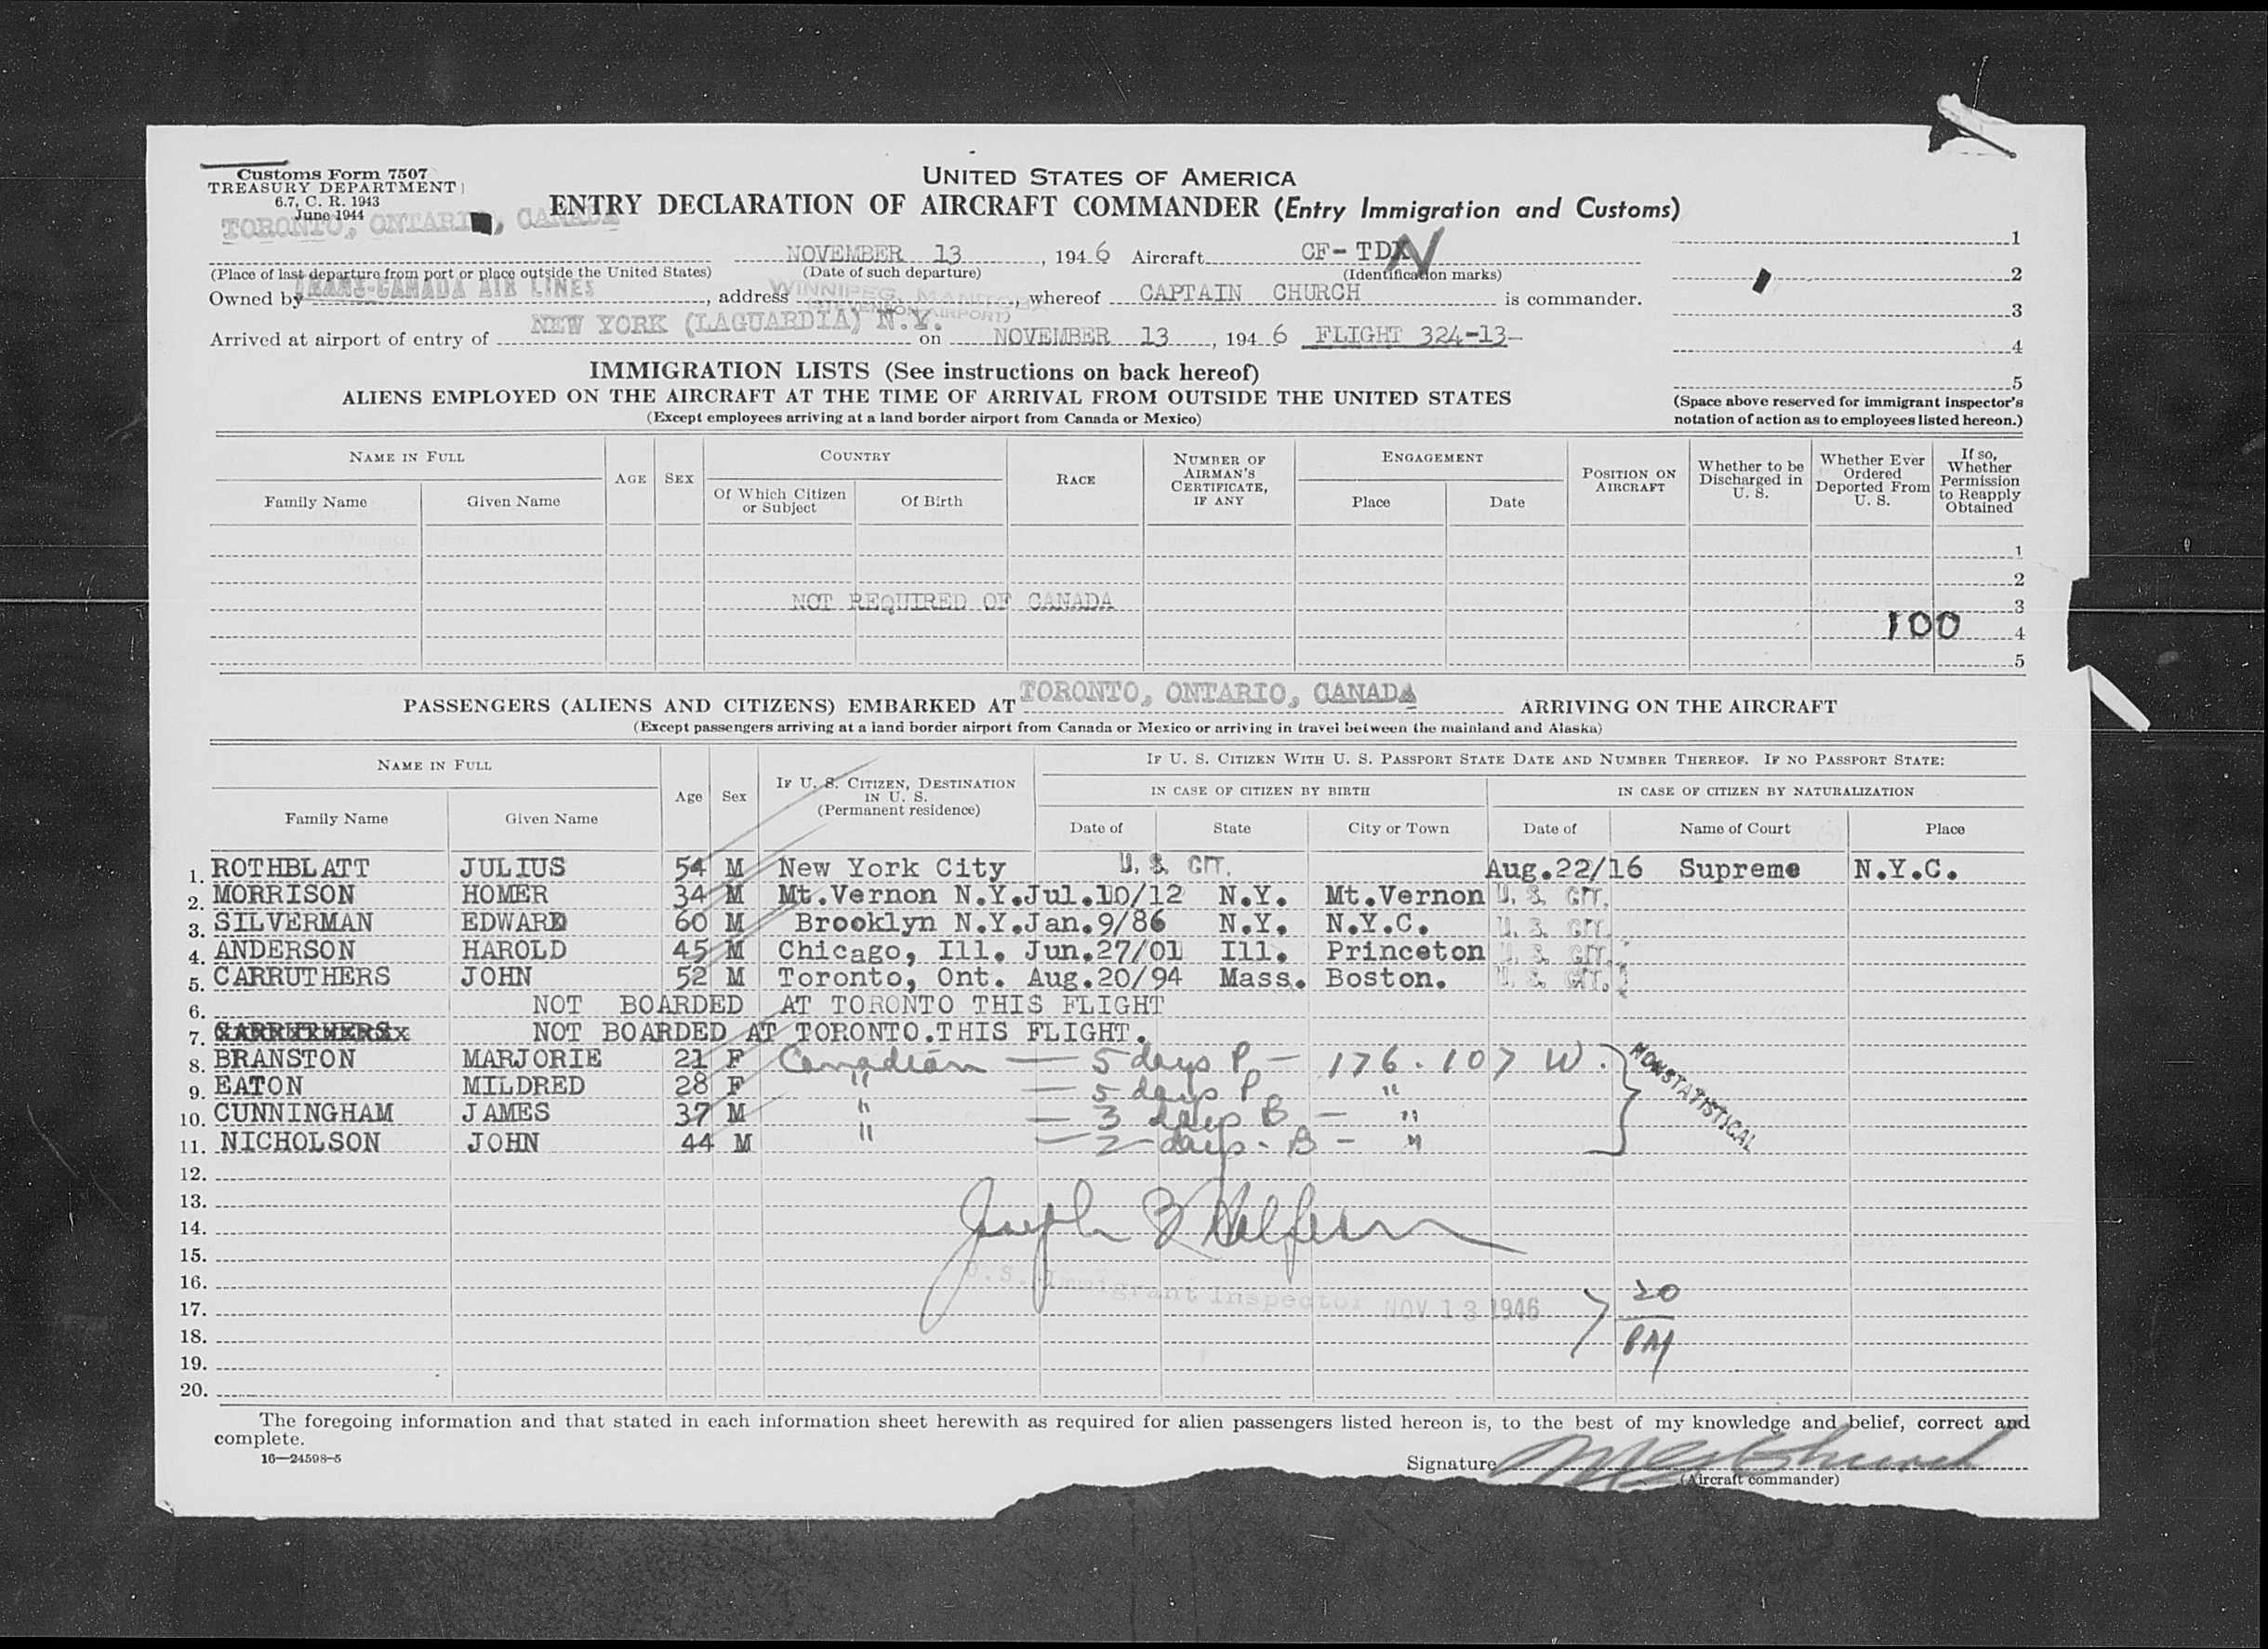 Customs Form 7507
TREASURY DEPARTMENT
6.7, C. R. 1943
June 1944
UNITED STATES OF AMERICA
ENTRY DECLARATION OF AIRCRAFT COMMANDER (Entry Immigration and Customs)
TORONTO, ONTARIO, CANADA NOVEMBER 13, 1946 Aircraft CF-TDN 1
(Place of last departure from port or place outside the United States) (Date of such departure) (Identification marks) 2
Owned by TRANS-CANADA AIR LINES, address WINNIPEG, MANITOBA (STEVENSON AIRPORT), whereof CAPTAIN CHURCH is commander. 3
Arrived at airport of entry of NEW YORK (LAGUARDIA) N.Y. on NOVEMBER 13, 1946 FLIGHT 324-13- 4
5
IMMIGRATION LISTS (See instructions on back hereof)
ALIENS EMPLOYED ON THE AIRCRAFT AT THE TIME OF ARRIVAL FROM OUTSIDE THE UNITED STATES
(Except employees arriving at a land border airport from Canada or Mexico)
(Space above reserved for immigrant inspector's
notation of action as to employees listed hereon.)
NAME IN FULL AGE SEX COUNTRY RACE NUMBER OF AIRMAN'S CERTIFICATE, IF ANY ENGAGEMENT POSITION ON AIRCRAFT Whether to be Discharged in U. S. Whether Ever Ordered Deported From U. S. If so, Whether Permission to Reapply Obtained
Family Name Given Name Of Which Citizen or Subject Of Birth Place Date
1
2
NOT REQUIRED OF CANADA 3
100 4
5
PASSENGERS (ALIENS AND CITIZENS) EMBARKED AT TORONTO, ONTARIO, CANADA ARRIVING ON THE AIRCRAFT
(Except passengers arriving at a land border airport from Canada or Mexico or arriving in travel between the mainland and Alaska)
NAME IN FULL Age Sex IF U. S. CITIZEN, DESTINATION IN U. S. (Permanent residence) IF U. S. CITIZEN WITH U. S. PASSPORT STATE DATE AND NUMBER THEREOF. IF NO PASSPORT STATE:
IN CASE OF CITIZEN BY BIRTH IN CASE OF CITIZEN BY NATURALIZATION
Family Name Given Name Date of State City or Town Date of Name of Court Place
1. ROTHBLATT JULIUS 54 M New York City U. S. CIT. Aug.22/16 Supreme N.Y.C.
2. MORRISON HOMER 34 M Mt.Vernon N.Y. Jul.10/12 N.Y. Mt.Vernon U. S. CIT.
3. SILVERMAN EDWARD 60 M Brooklyn N.Y. Jan.9/86 N.Y. N.Y.C. U. S. CIT.
4. ANDERSON HAROLD 45 M Chicago, Ill. Jun.27/01 Ill. Princeton U. S. CIT.
5. CARRUTHERS JOHN 52 M Toronto, Ont. Aug.20/94 Mass. Boston. U. S. CIT.
6. NOT BOARDED AT TORONTO THIS FLIGHT
7. CARRUTHERS NOT BOARDED AT TORONTO.THIS FLIGHT.
8. BRANSTON MARJORIE 21 F Canadian — 5 days P — 176.107 W. NONSTATISTICAL
9. EATON MILDRED 28 F " — 5 days P "
10. CUNNINGHAM JAMES 37 M " — 3 days B — "
11. NICHOLSON JOHN 44 M " — 2 days - B — "
12.
13.
14. Joseph B Halpern
15.
16. U.S. Immigrant Inspector NOV 13 1946 20
17. PM
18.
19.
20.
The foregoing information and that stated in each information sheet herewith as required for alien passengers listed hereon is, to the best of my knowledge and belief, correct and
complete.
16—24598-5
Signature
(Aircraft commander)